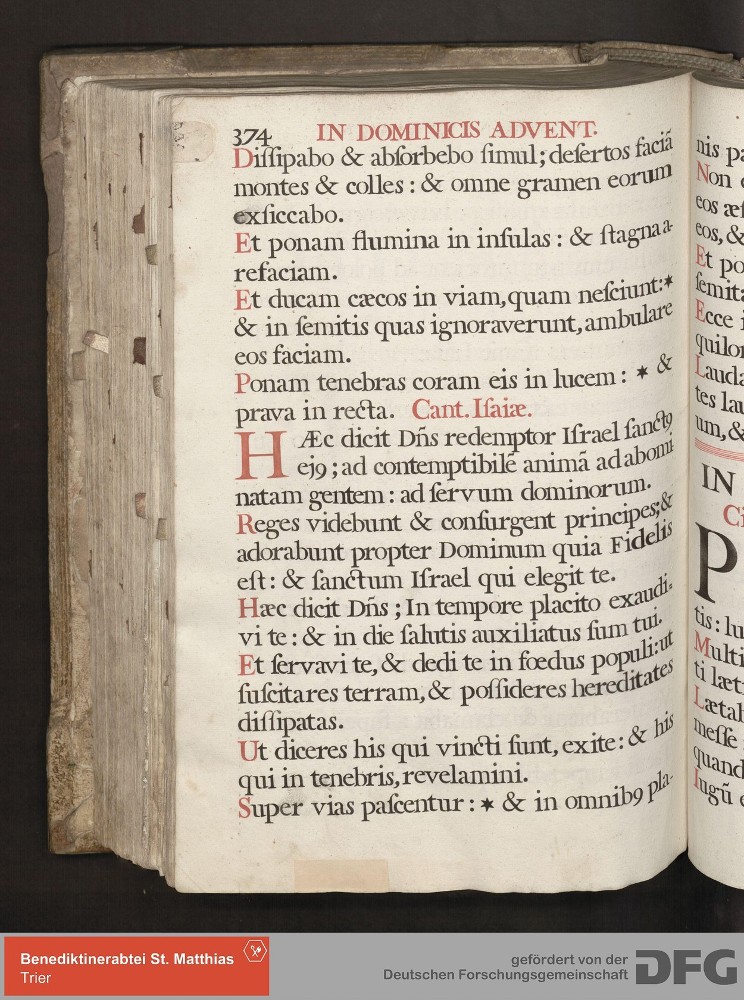 374 IN DOMINICIS ADVENT.
Diſſipabo & abſorbebo ſimul; deſertos faciã
montes & colles : & omne gramen eorum
exſiccabo.
Et ponam flumina in inſulas : & ſtagna a-
refaciam.
Et ducam cæcos in viam, quam neſciunt:*
& in ſemitis quas ignoraverunt, ambulare
eos faciam.
Ponam tenebras coram eis in lucem : * &
prava in recta. Cant. Iſaiæ.
HÆc dicit Dñs redemptor Iſrael ſanctꝰ
ejꝰ ; ad contemptibilẽ animã ad abomi
natam gentem : ad ſervum dominorum.
Reges videbunt & conſurgent principes; &
adorabunt propter Dominum quia Fidelis
eſt : & ſanctum Iſrael qui elegit te.
Hæc dicit Dñs ; In tempore placito exaudi-
vi te : & in die ſalutis auxiliatus ſum tui.
Et ſervavi te, & dedi te in foedus populi: ut
ſuſcitares terram, & poſſideres hereditates
diſſipatas.
Ut diceres his qui vincti ſunt, exite : & his
qui in tenebris, revelamini.
Super vias paſcentur : * & in omnibꝰ pla-
nis pa
Non
eos æſ
eos, &
Et po
ſemita
Ecce i
quilon
Lauda
tes lau
um, &
IN
Ci
P
tis : lu
Multi
ti læti
Lætab
meſſe
quand
Iugũ
Benediktinerabtei St. Matthias
Trier
gefördert von der
Deutschen Forschungsgemeinschaft
DFG